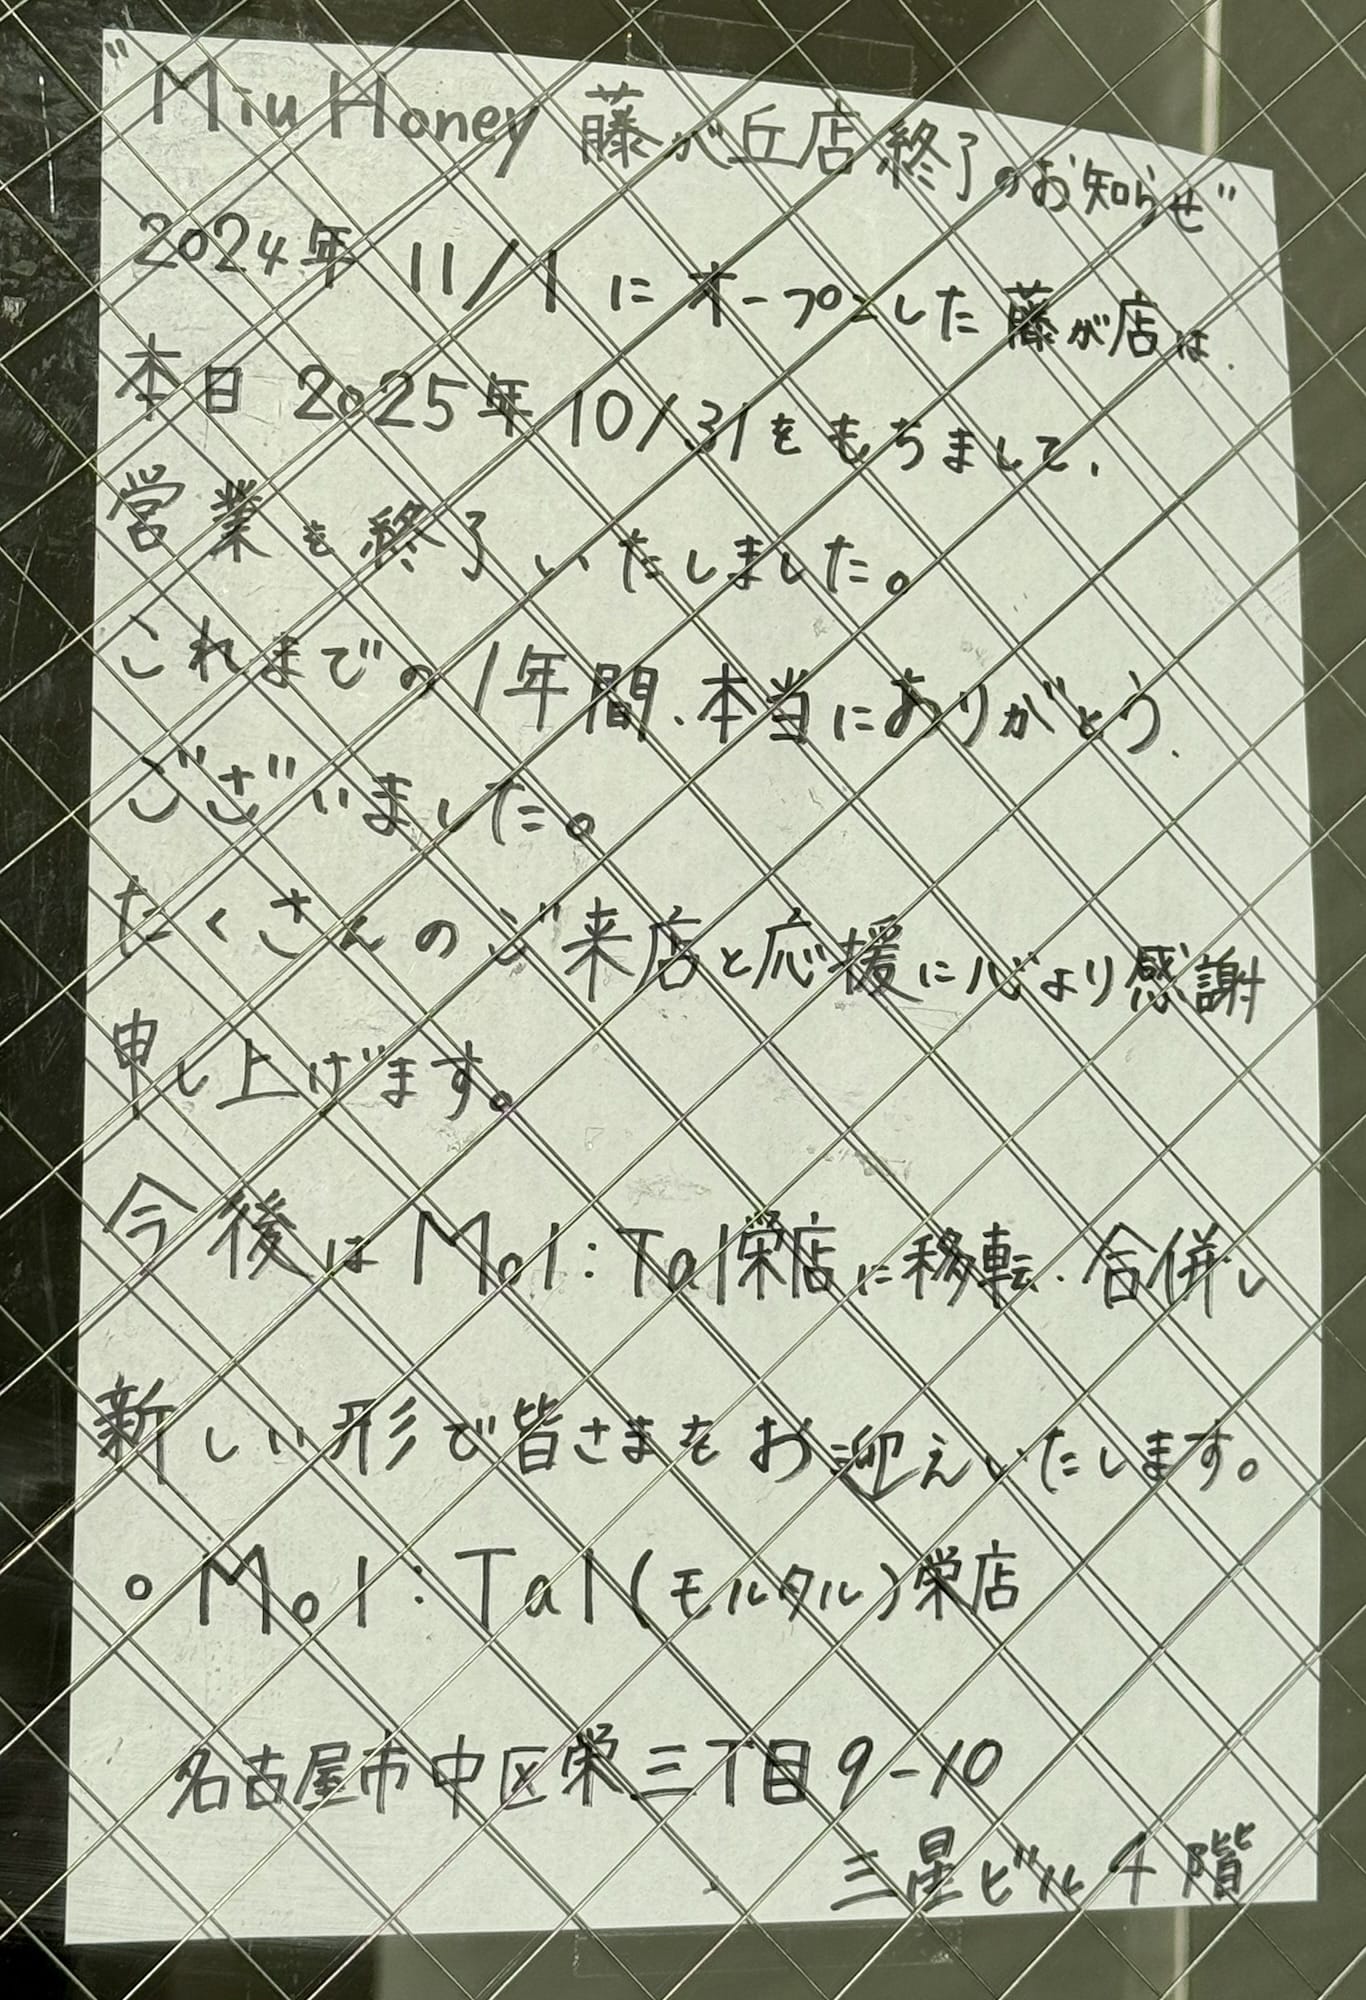 "Miu Honey 藤が丘店 終了のお知らせ"
2024年 11/1 に オープンした 藤が店は、
本日 2025年 10/31をもちまして、
営業を終了いたしました。
これまでの1年間、本当にありがとう、
ございました。
たくさんのご来店と応援に心より感謝
申し上げます。
今後は Mol:Tal栄店に移転、合併し
新しい形で皆さまをお迎えいたします。
○ Mol:Tal(モルタル)栄店
名古屋市中区栄三丁目9-10
三星ビル4階